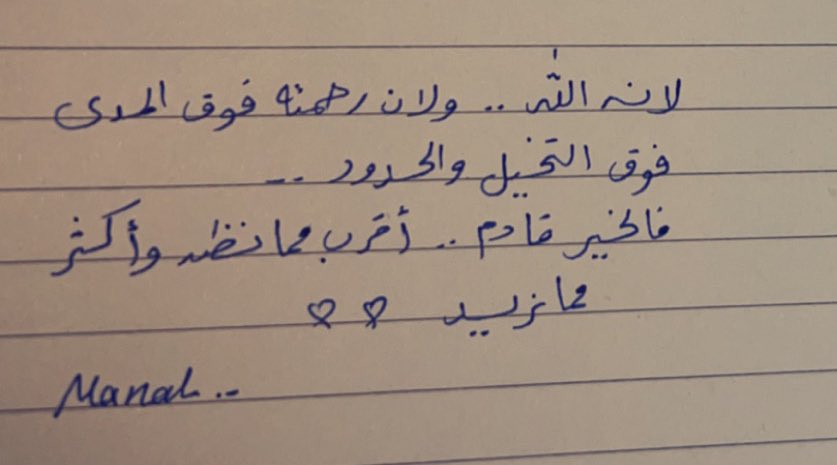 لانه الله .. ولان رحمته فوق المدى
فوق التخيل والحدود ...
فالخير قادم .. أقرب مما نظن وأكثر
مما نريد ♡ ♡
Manal ..